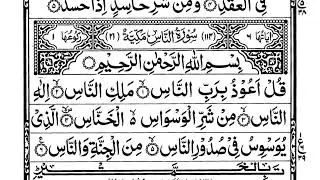 فِی الْعُقَدِ ۙ وَمِنْ شَرِّ حَاسِدٍ اِذَا حَسَدَ
اٰیَاتُهَا ٦ سُوْرَةُ النَّاسِ مَكِّیَّةٌ (٢١) (١١٤) رُكُوْعُهَا
بِسْمِ اللّٰهِ الرَّحْمٰنِ الرَّحِیْمِ
قُلْ اَعُوْذُ بِرَبِّ النَّاسِ ۙ مَلِكِ النَّاسِ ۙ اِلٰهِ
النَّاسِ ۙ مِنْ شَرِّ الْوَسْوَاسِ ۙ الْخَنَّاسِ ۙ الَّذِیْ
یُوَسْوِسُ فِیْ صُدُوْرِ النَّاسِ ۙ مِنَ الْجِنَّةِ وَالنَّاسِ